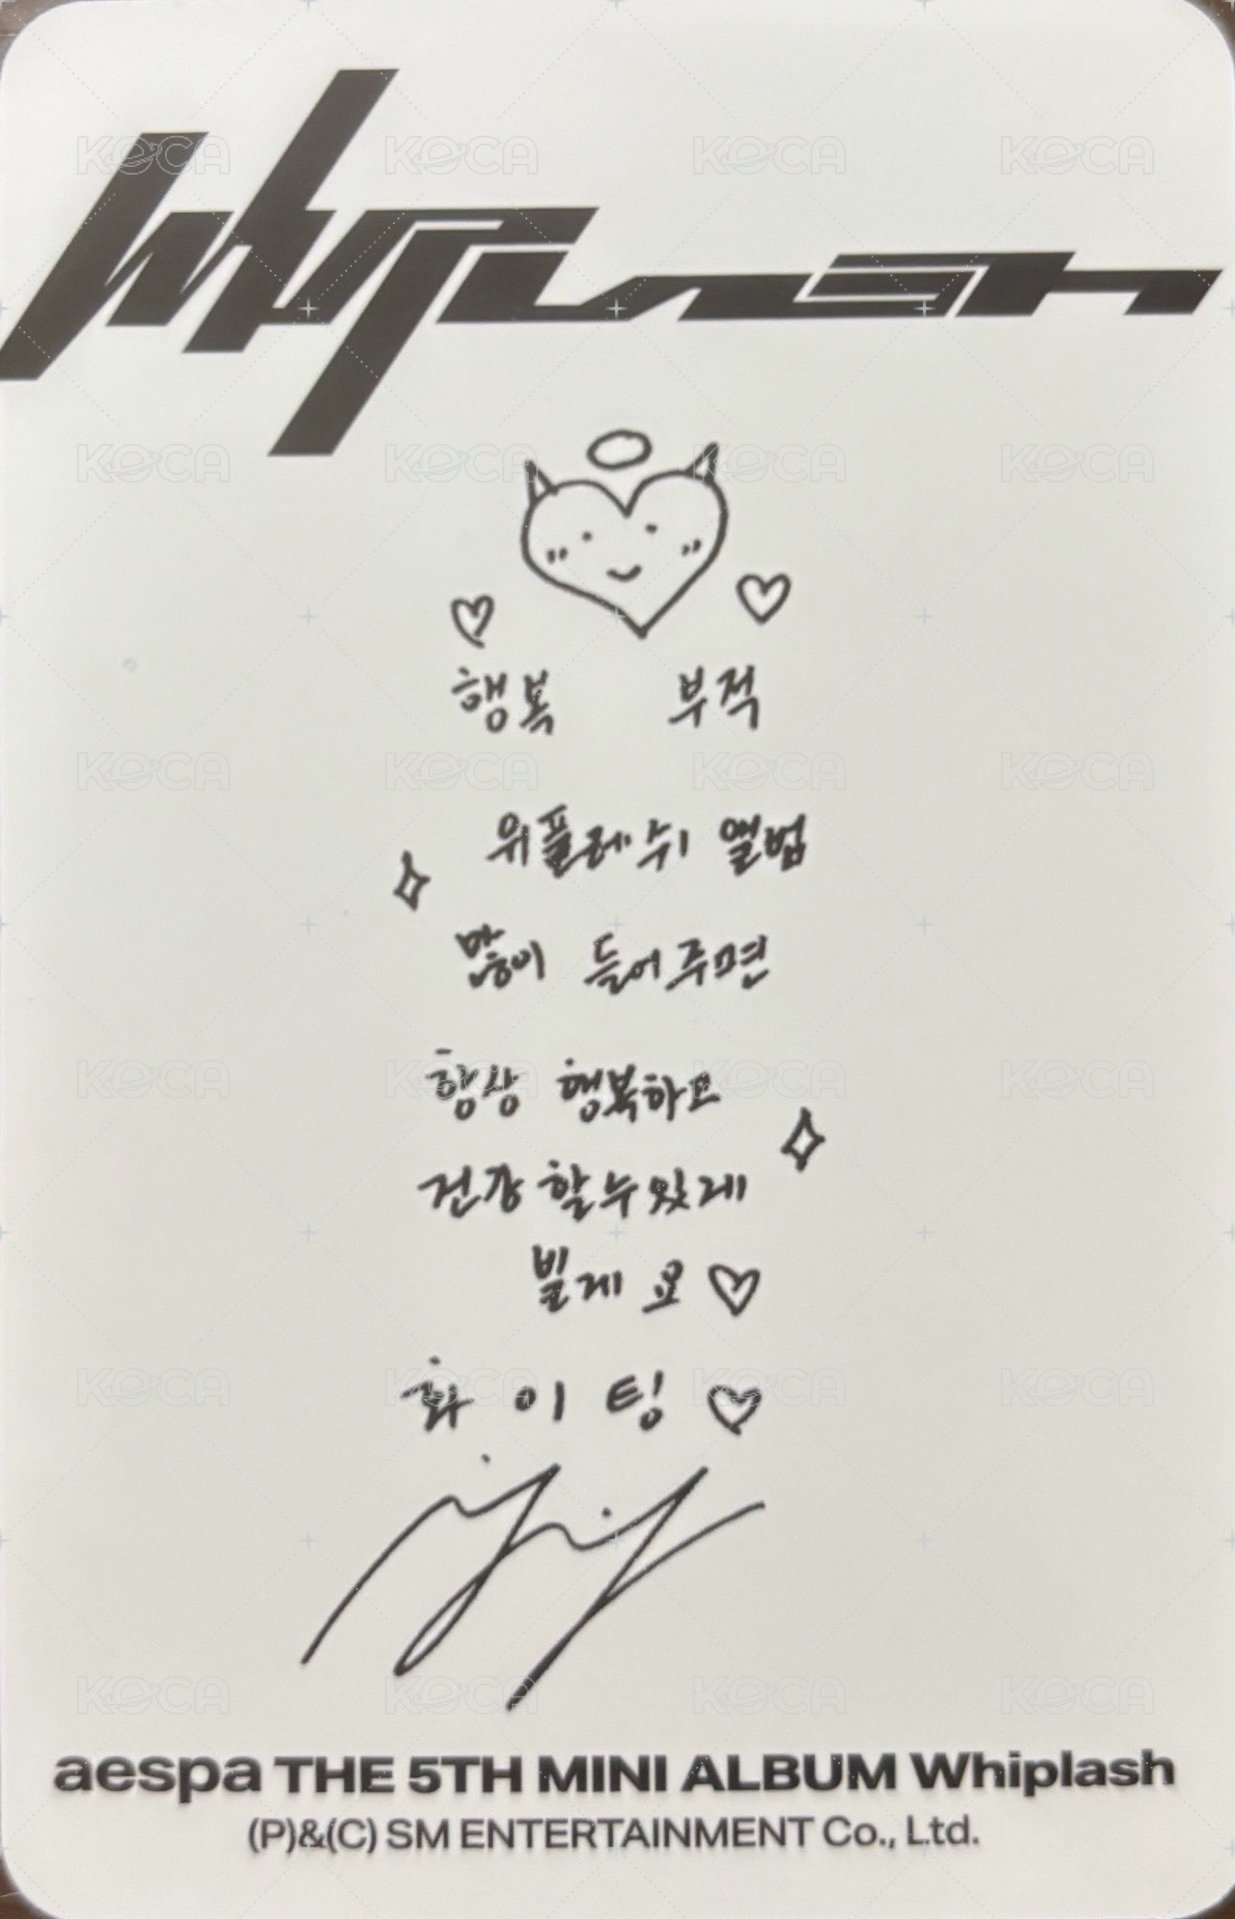 Whiplash
행복 부적
위플레쉬 앨범
많이 들어주면
항상 행복하고
건강할수있게
빌게요♡
화이팅♡
aespa THE 5TH MINI ALBUM Whiplash
(P)&(C) SM ENTERTAINMENT Co., Ltd.
KOCA